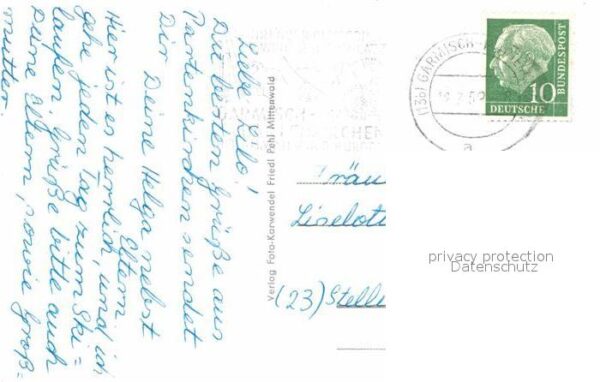 Liebe Lilo!
Die besten Grüße aus
Partenkirchen sendet
Dir
Deine Helga nebst
Eltern
Hier ist es herrlich, und ich
gehe jeden Tag zum Ski=
laufen. Grüße bitte auch
Deine Eltern, sowie Groß=
mutter.
Verlag Foto-Karwendel Friedl Pehl Mittenwald
(13b) GARMISCH-
a
10
DEUTSCHE
BUNDESPOST
Fräu
Liselot
(23) Stelle
privacy protection
Datenschutz